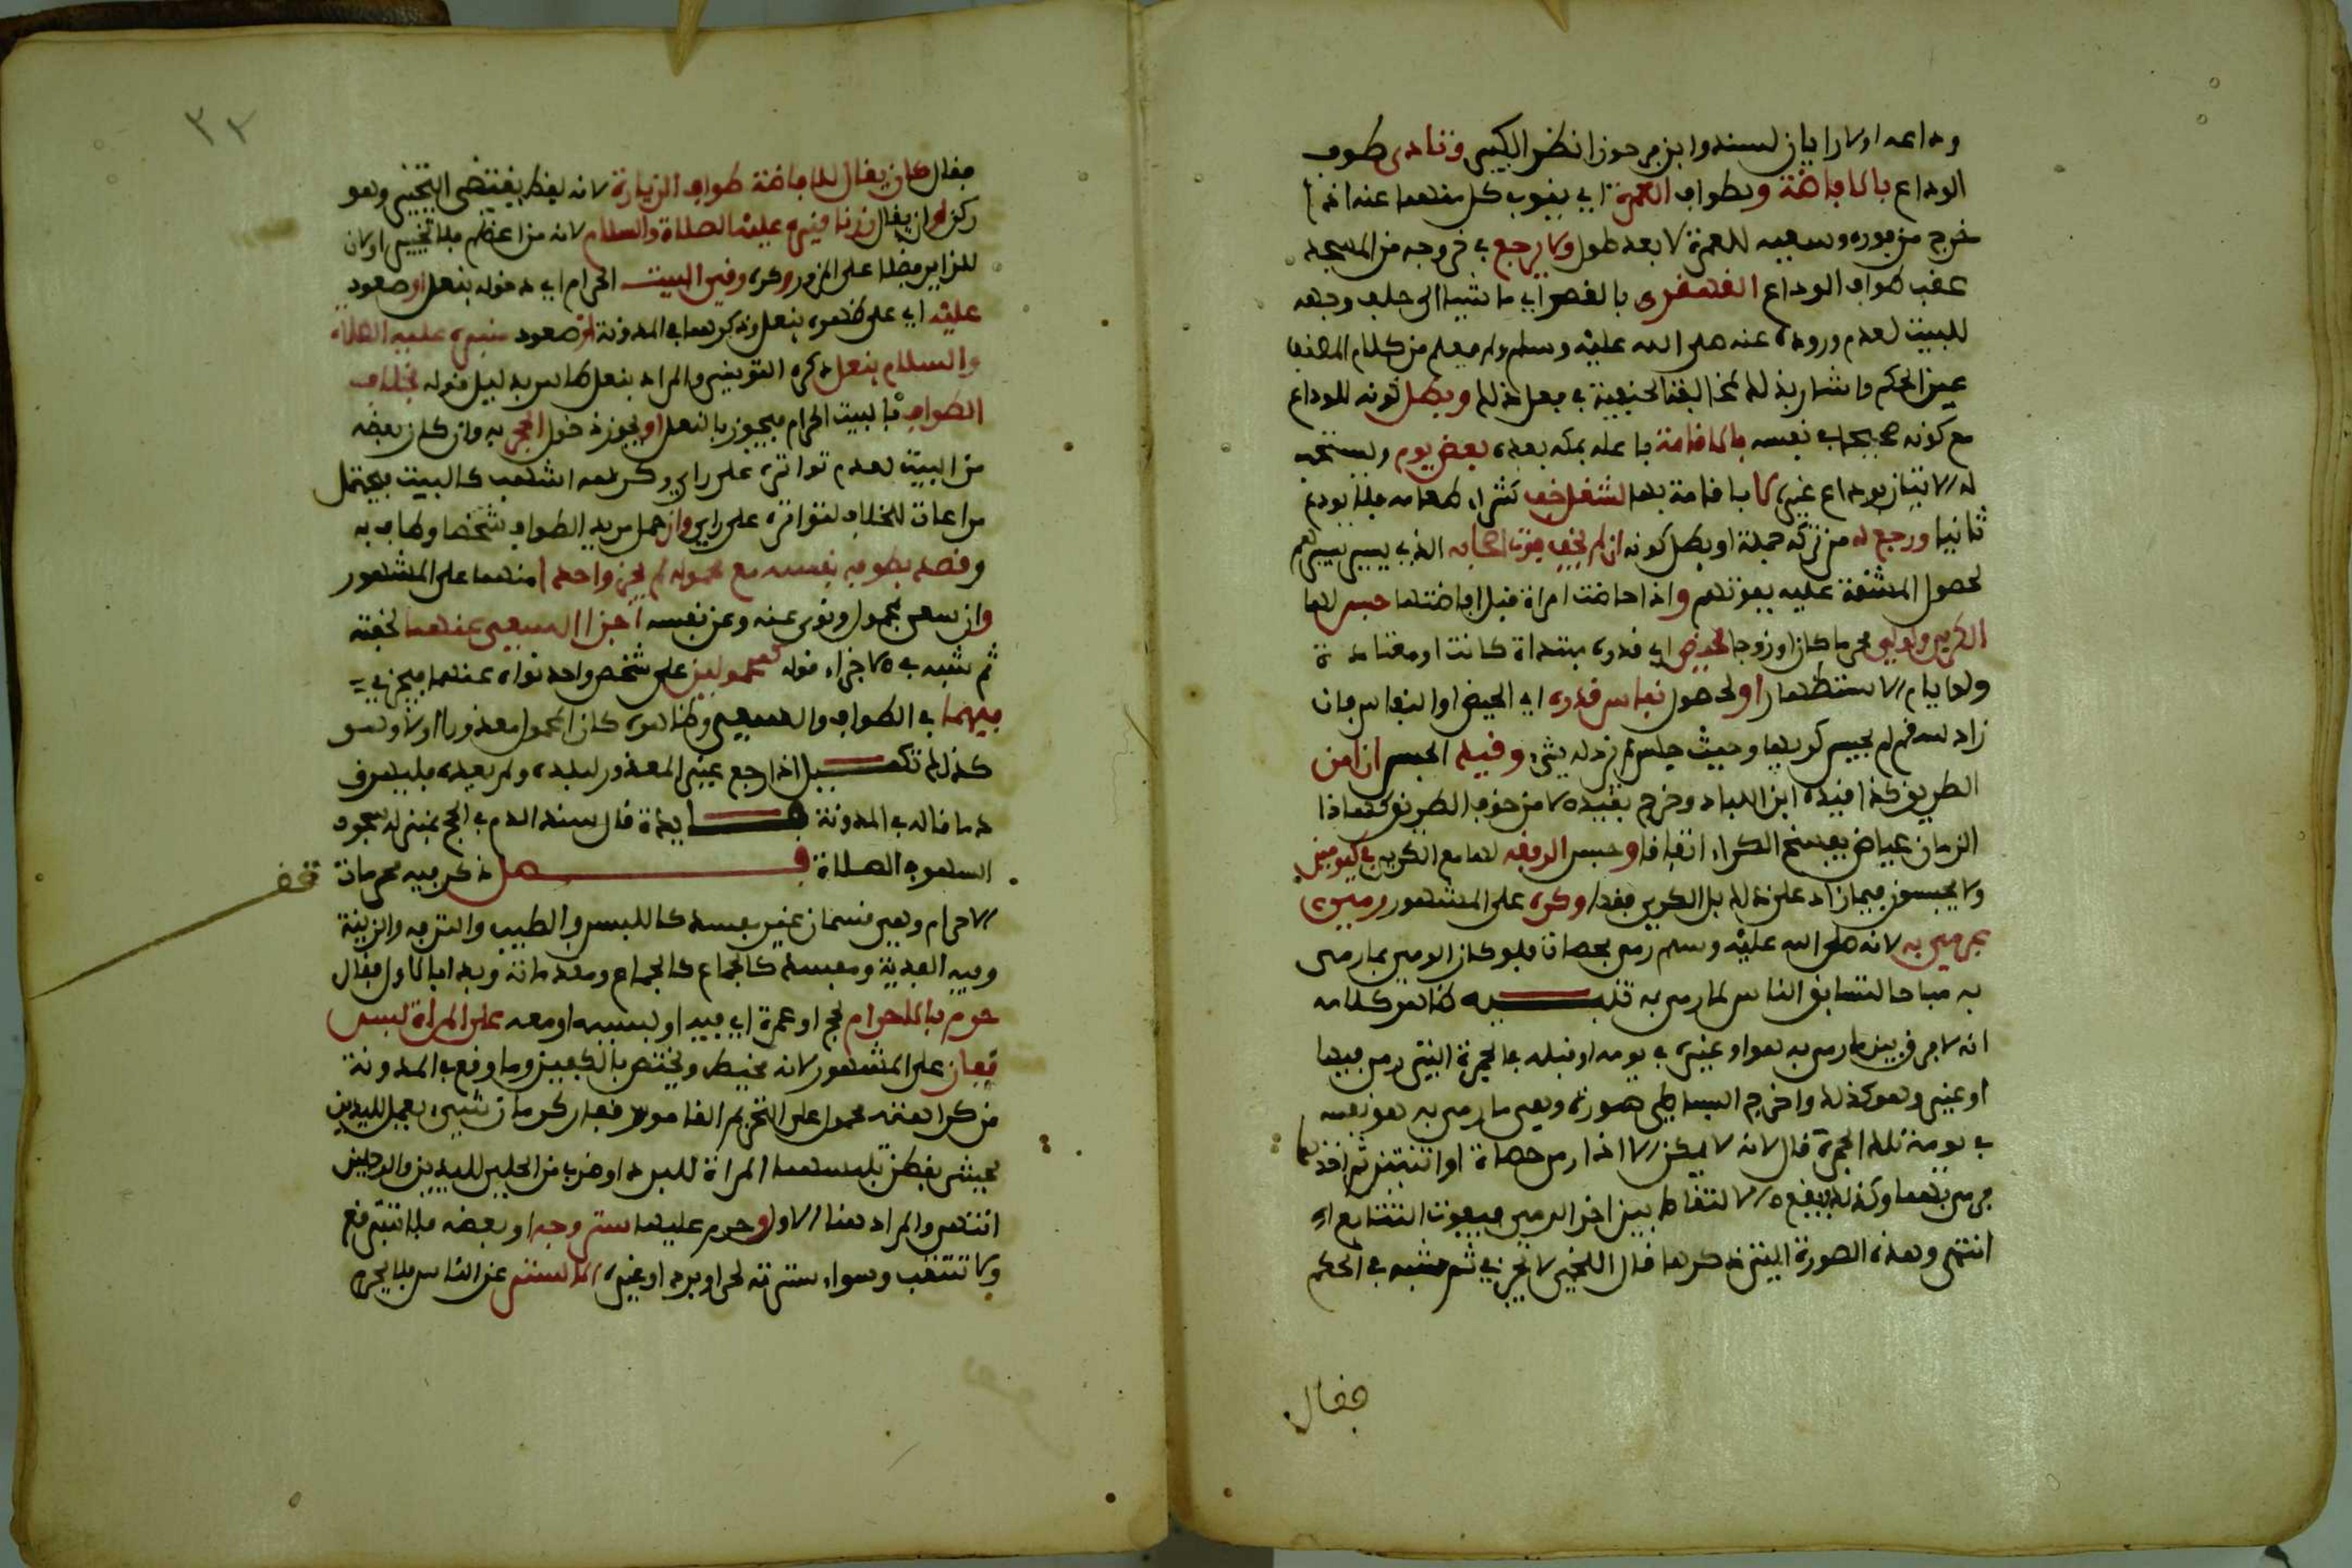 وداعه اولا رايان لسند وابن فرحون انظر الكبير وتادى طوف
الوداع بالافاضة وبطواف العمرة اي ينوب كل منهما عنه اذا
خرج من فوره وسعيه للعمرة لا يعد طول ولا يرجع في خروجه من المسجد
عقب طواف الوداع القهقرى بالقصر اي ماشيا الى خلف وجهه
للبيت لعدم وروده عنه صلى الله عليه وسلم ولم يعلم من كلام المصنف
عين الحكم واشار بذلك لمخالفة الحنفية في فعل ذلك وبطل كونه للوداع
مع كونه صحيحا في نفسه بالاقامة باعله بمكة بعده بعض يوم ويستحب
له الاتيان بوداع غيره لا باقامة بها لشغل خف كشراء طعامه فلا يودع
ثانيا ورجع له من تركه جملة او بطل كونه ان لم يخف فوت اصحابه الذي يسير بسيرهم
لحصول المشقة عليه بفوتهم واذا حاضت امراة قبل افاضتها حبس لها
الكري والولي محرما كان او زوجا لحيض اي قدره مبتداة كانت او معتادة
ولو ايام الاستظهار او لحصول نفاس قدره اي الحيض او النفاس فان
زاد لسفم لم يحبس كربها وحيث حبس لم يزد له شيء وقيد الحبس ان امن
الطريق كذا قيده ابن اللباد وخرج بقيده لا من خوف الطريق كهذا
الزمان عياض يفسخ الكراء اتفاقا وحبس الرفقه لها مع الكري في كيومين
ولا يحبسون فيما زاد على ذلك بل الكري فقط وكره على المشهور رمي
بمرمي به لانه صلى الله عليه وسلم رمى بحصات فلو كان الرمي بما رمي
به مباحا لتسابق الناس لما رمي به تنبيه ظاهر كلامه
انه لا فرق بين ما رمى به هو او غيره في يومه او قبله في الجمرة التي رمى فيها
او غيرها وهو كذلك واخرج البساطي صورة وهي ما رمى به هو نفسه
في يومه تلك الجمرة قال لانه لا يمكن الا اذا رمى حصاة او اثنتين ثم اخذها
فرمى بها وكذلك يقع الالتقاط بين اخر الرمي فيفوت التتابع اه
انتهى وهذه الصورة التي ذكرها قال اللخمي لا تجزي ثم شبه في الحكم
فقال
٣٢
فقال كان يقال للافاضة طواف الزيارة لانه لفظ يقتضي التخيير وهو
ركن او ان يقال زرنا قبره عليه الصلاة والسلام لانه من اعظم فلا تخيير او لان
للزاير فضلا على المزور وكره رقي البيت الحرام اي دخوله بنعل او صعود
عليه اي على ظهره بنعل وذكرهما في المدونة او صعود منبره عليه الصلاة
والسلام بنعل ذكره التوضيح والمراد بنعل طاهر بدليل قوله بخلاف
الطواف بالبيت الحرام فيجوز بالنعل او يجوز دخول الحجر به وان كان بعضه
من البيت لعدم تواتره على راي وكرهه اشهب كالبيت فيحتمل
مراعاة للخلاف لتواتره على راي وان حمل مريد الطواف شخصا وطاف به
وقصد بطوافه نفسه مع محموله لم يجز واحدا منهما على المشهور
وان سعى بمحمول ونوى عنه وعن نفسه اجزا السعي عنهما لخفته
ثم شبه في الاجزاء قوله كمحمولين على شخص واحد نواه عنهما فيجزي
فيهما في الطواف والسعي وظاهره كان المحمول معذورا او لا وهو
كذلك تكميل اذا رجع غير المعذور لبلده ولم يعده فليهرق
دما قاله في المدونة فايدة قال سند الدم في الحج بمنزلة سجود
السهو في الصلاة فصل ذكر فيه محرمات
الاحرام وهي قسمان غير مفسد كاللبس والطيب والتزيه والزينة
وفيه الفدية ومفسد كالجماع كالجماع ومقدماته وبدا بالاول فقال
حرم بالاحرام لحج او عمرة اي فيه او بسببه او معه على المراة لبس
قفاز على المشهور لانه مخيط ويختص بالكعبين وما وقع في المدونة
من كراهته محمول على التحريم القاموس قفاز كرمان شيء يعمل لليدين
يحشى بقطن تلبسهما المراة للبرد او ضرب من الحلي لليدين والرجلين
انتهى والمراد هنا الاول وحرم عليها ستر وجه او بعضه فلا تتبرقع
ولا تنتقب وسواء سترته لحر او برد او غيره الا لستر عن الناس فلا يحرم
قف